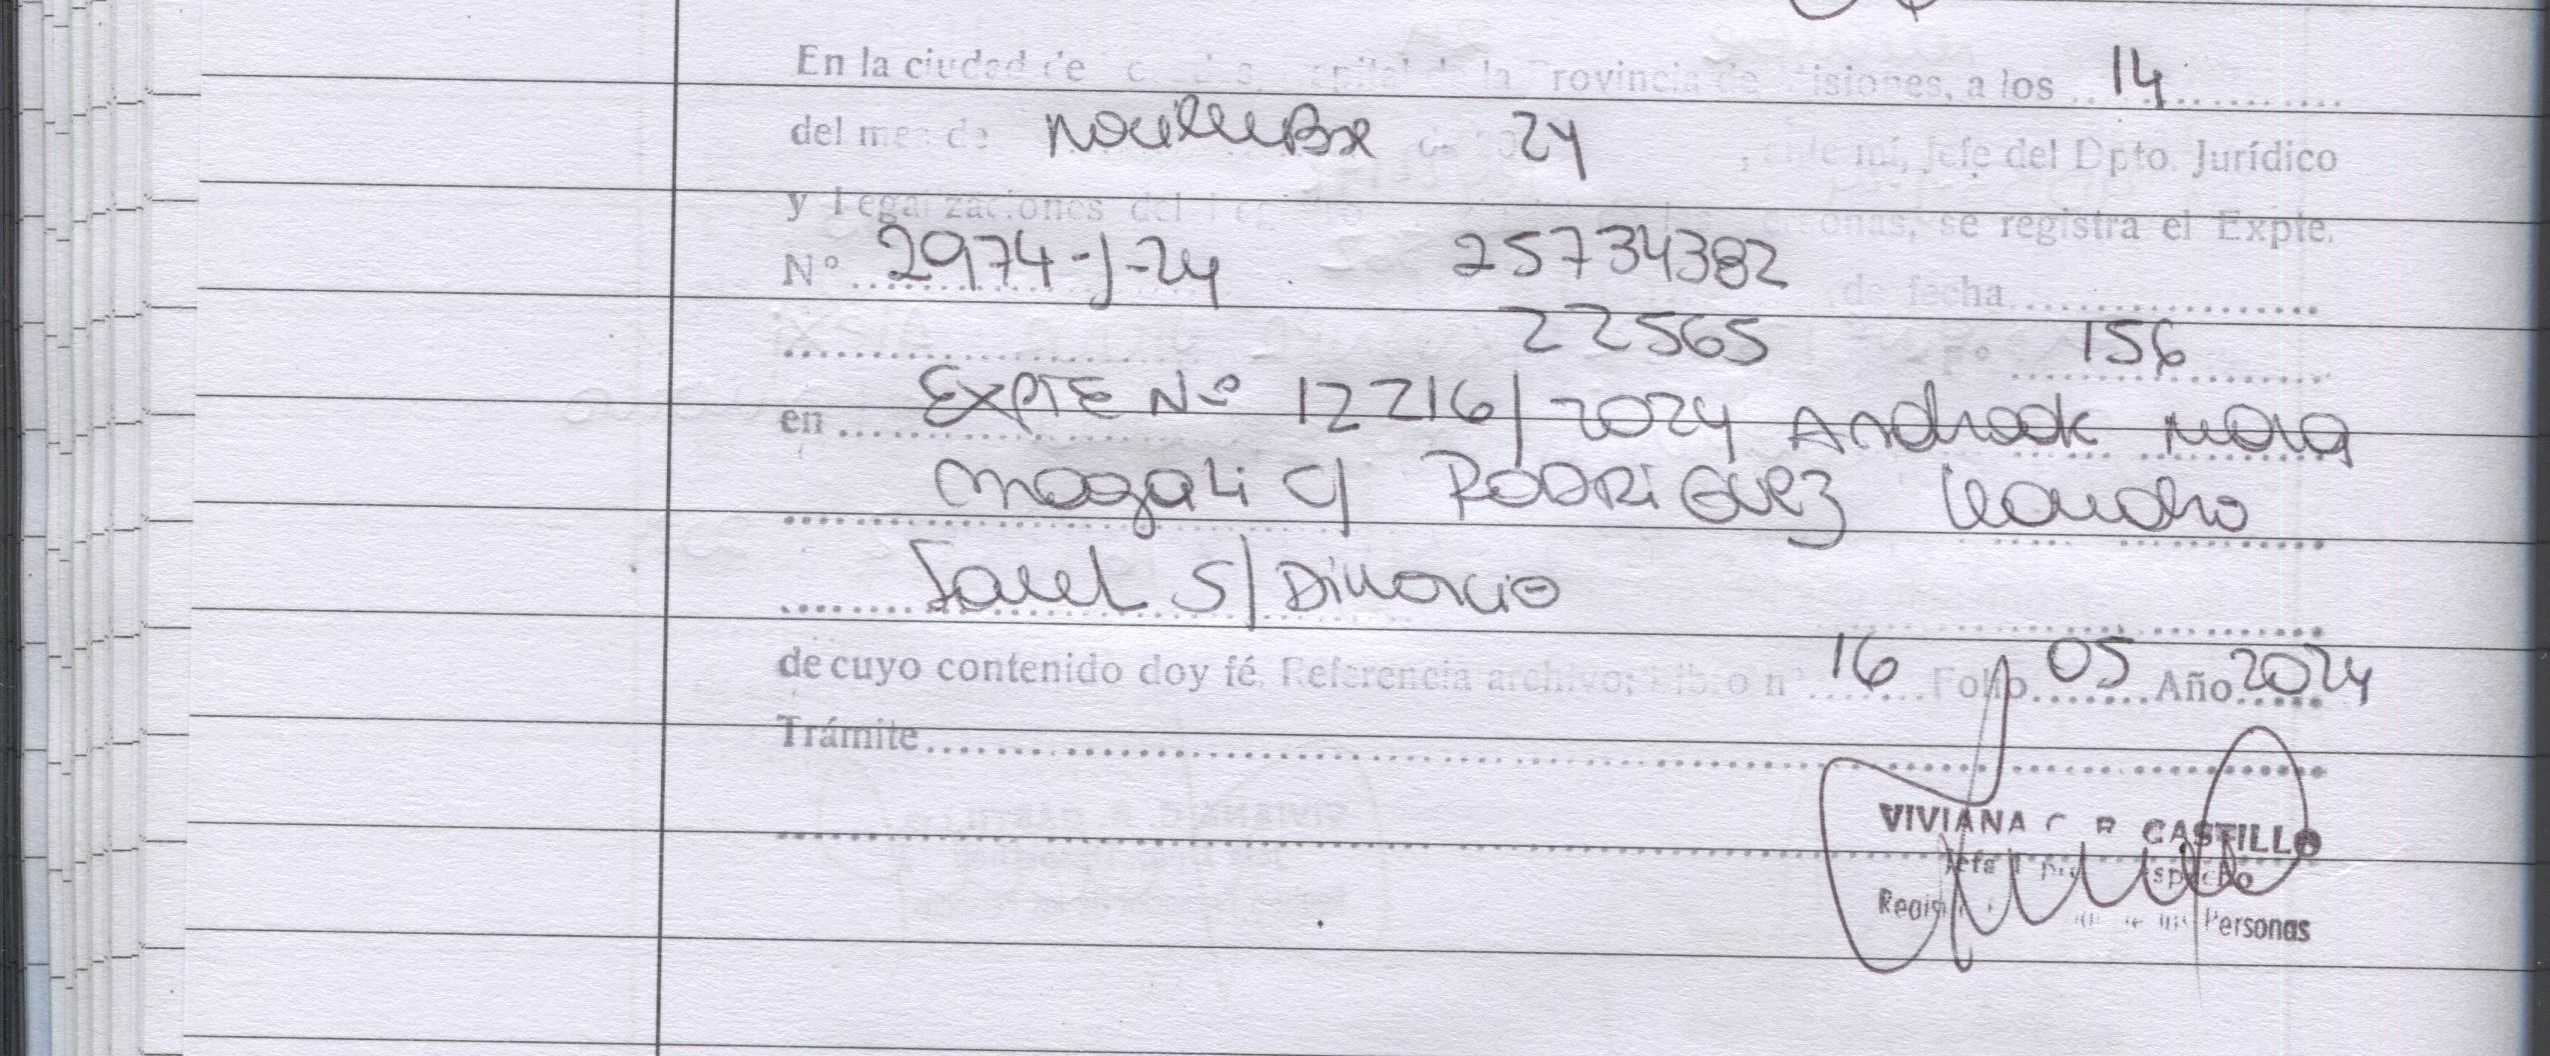 En la ciudad de capital de la Provincia de Misiones, a los 14
del mes de Noviembre de 20 24, ante mí, Jefe del Dpto. Jurídico
y Legalizaciones del personas, se registra el Expte.
Nº 2974-J-24 25734382 de fecha
22565 Fº 156
en EXPTE Nº 12216/2024 Andrade Mara
Magali C/ RODRIGUEZ Leandro
Saul S/ Divorcio
de cuyo contenido doy fé. Referencia archivo: Libro nº 16 Folio 05 Año 2024
Trámite
VIVIANA C. R. CASTILLO
Jefa Despacho
Regis de las Personas